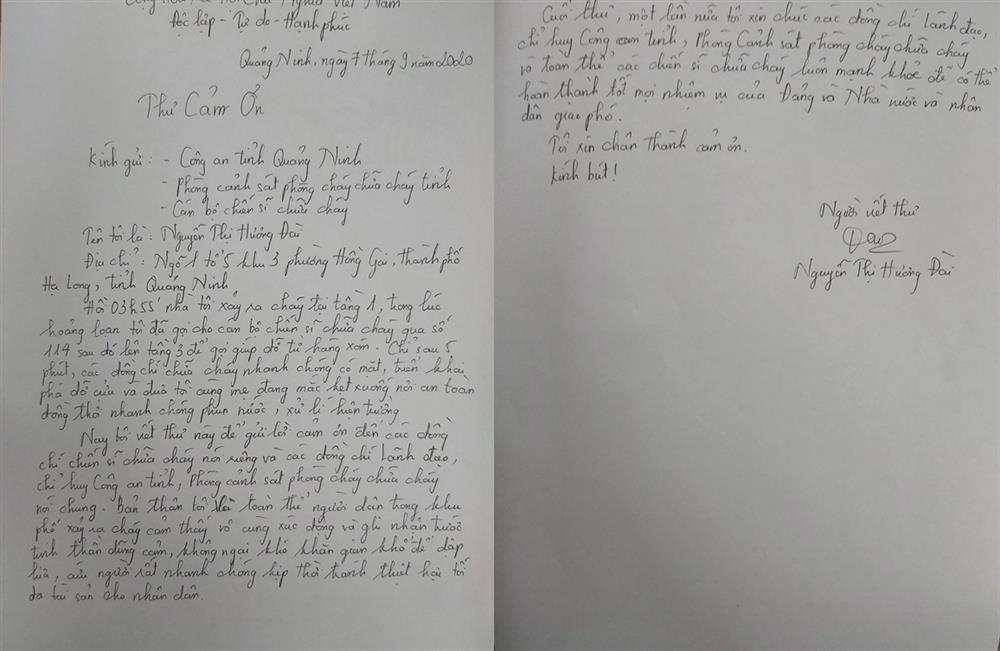 Cộng hoà, xã hội chủ nghĩa Việt Nam
Độc lập - Tự do - Hạnh phúc
Quảng Ninh, ngày 7 tháng 9 năm 2020
Thư Cảm Ơn
Kính gửi : - Công an tỉnh Quảng Ninh
- Phòng cảnh sát phòng cháy chữa cháy tỉnh
- Cán bộ chiến sĩ chữa cháy
Tên tôi là : Nguyễn Thị Hương Đài
Địa chỉ : Ngõ 1 tổ 5 khu 3 phường Hồng Gai, thành phố
Hạ Long, tỉnh Quảng Ninh
Hồi 03h55' nhà tôi xảy ra cháy tại tầng 1, trong lúc
hoảng loạn tôi đã gọi cho cán bộ chiến sĩ chữa cháy qua số
114 sau đó lên tầng 3 để gọi giúp đỡ từ hàng xóm. Chỉ sau 5
phút, các đồng chí chữa cháy nhanh chóng có mặt, triển khai
phá dỡ cửa và đưa tôi cùng mẹ đang mắc kẹt xuống nơi an toàn
đồng thời nhanh chóng phun nước, xử lí hiện trường
Nay tôi viết thư này để gửi lời cảm ơn đến các đồng
chí chiến sĩ chữa cháy nói riêng và các đồng chí lãnh đạo,
chỉ huy Công an tỉnh, Phòng cảnh sát phòng cháy chữa cháy
nói chung. Bản thân tôi và toàn thể người dân trong khu
phố xảy ra cháy cảm thấy vô cùng xúc động và ghi nhận trước
tinh thần dũng cảm, không ngại khó khăn gian khổ để dập
lửa, cứu người rất nhanh chóng kịp thời tránh thiệt hại tối
đa tài sản cho nhân dân.
Cuối thư, một lần nữa tôi xin chúc các đồng chí lãnh đạo,
chỉ huy Công an tỉnh, Phòng Cảnh sát phòng cháy chữa cháy
và toàn thể các chiến sĩ chữa cháy luôn mạnh khoẻ để có thể
hoàn thành tốt mọi nhiệm vụ của Đảng và Nhà nước và nhân
dân giao phó.
Tôi xin chân thành cảm ơn.
Kính bút !
Người viết thư
Đài
Nguyễn Thị Hương Đài